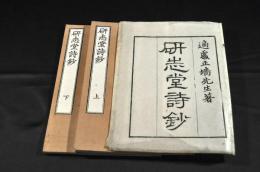 適處止墻先生著
研志堂詩鈔
研志堂詩鈔 上
研志堂詩鈔 下